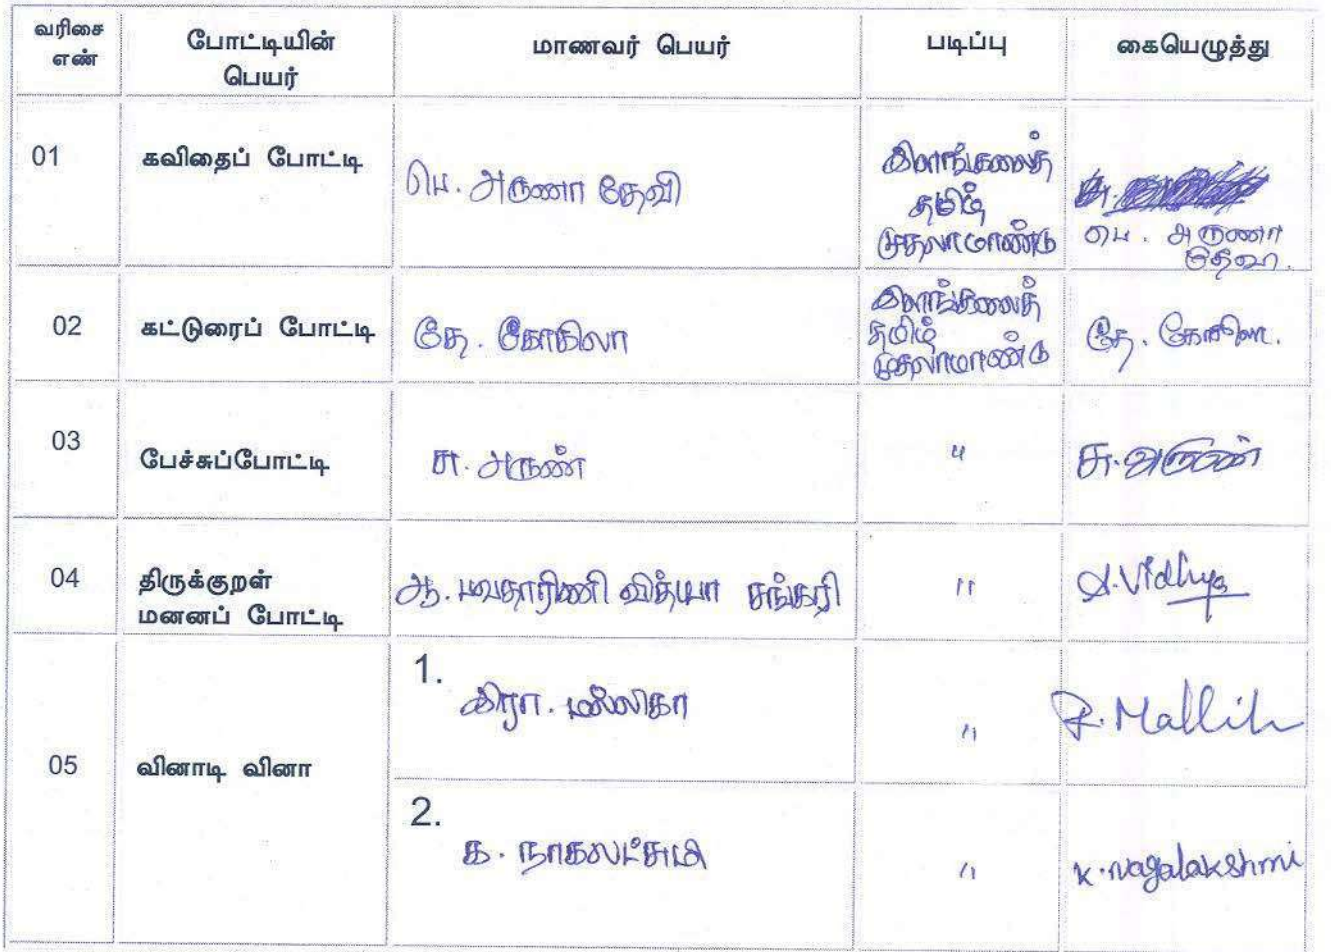 வரிசை எண்
போட்டியின் பெயர்
மாணவர் பெயர்
படிப்பு
கையெழுத்து
01
கவிதைப் போட்டி
பெ. அருணா தேவி
இளங்கலைத்
தமிழ்
முதலாமாண்டு
பெ. அருணா
தேவி.
02
கட்டுரைப் போட்டி
தே. கோகிலா
இளங்கலைத்
தமிழ்
முதலாமாண்டு
தே. கோகிலா.
03
பேச்சுப்போட்டி
சு. அருண்
"
சு. அருண்
04
திருக்குறள்
மனனப் போட்டி
ஆ. பவதாரிணி வித்யா சங்கரி
"
A. Vidhya
05
வினாடி வினா
1.
மல்லிகா
"
R. Mallik
2.
க. நாகலட்சுமி
"
K. Nagalakshmi